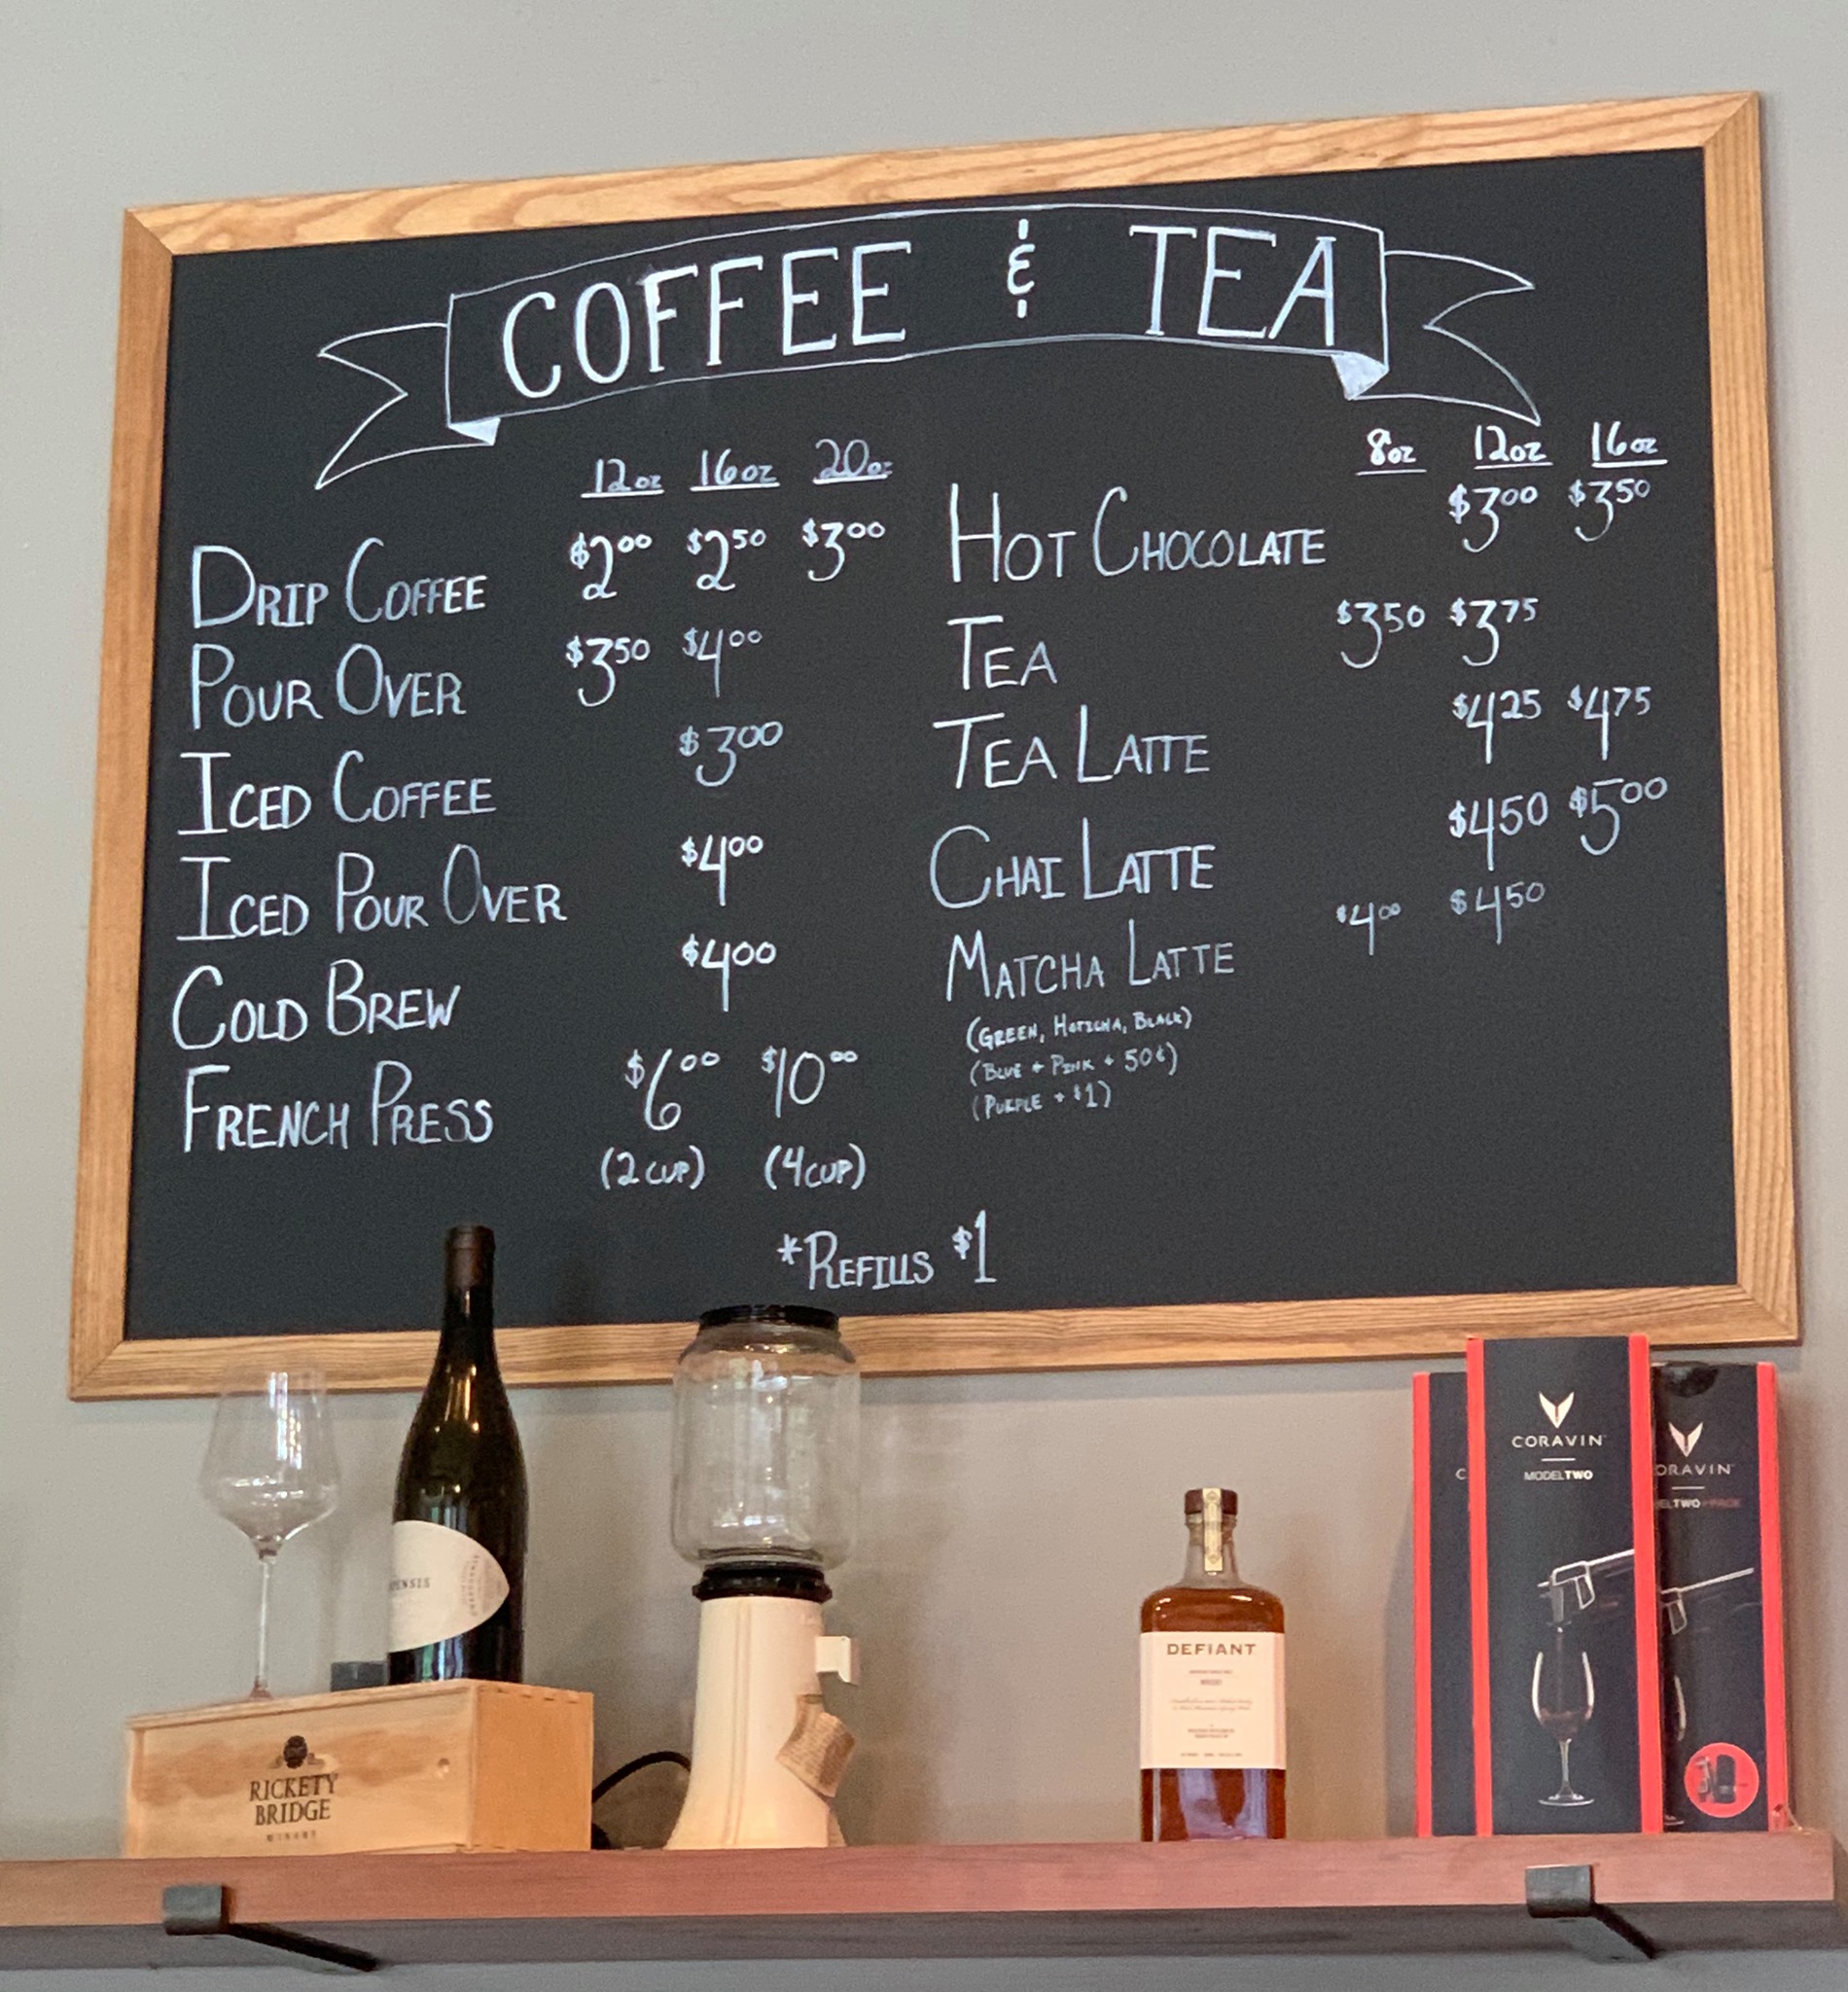 COFFEE & TEA
12oz 16oz 20oz
DRIP COFFEE $2.00 $2.50 $3.00
POUR OVER $3.50 $4.00
ICED COFFEE $3.00
ICED POUR OVER $4.00
COLD BREW $4.00
FRENCH PRESS $6.00 $10.00
(2 CUP) (4 CUP)
8oz 12oz 16oz
HOT CHOCOLATE $3.00 $3.50
TEA $3.50 $3.75
TEA LATTE $4.25 $4.75
CHAI LATTE $4.50 $5.00
MATCHA LATTE $4.00 $4.50
(GREEN, HOJICHA, BLACK)
(BLUE + PINK + 50¢)
(PURPLE + $1)
*REFILLS $1
ENSIS
RICKETY
BRIDGE
WINERY
DEFIANT
CORAVIN
MODELTWO
ORAVIN
ELTWO+PACK